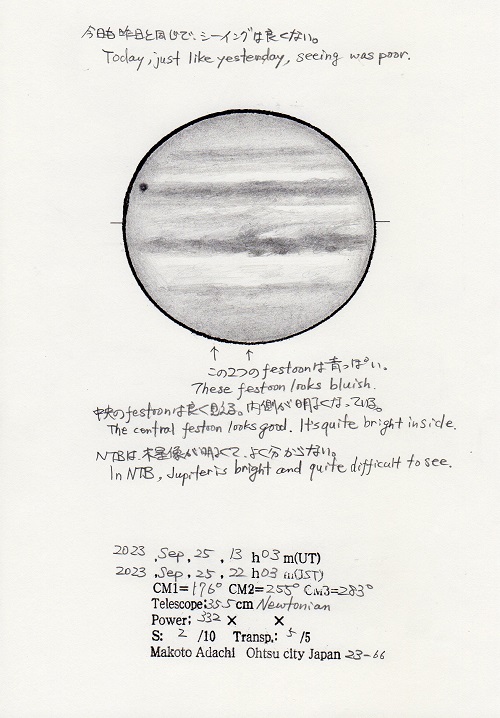 今日も昨日と同じで、シーイングは良くない。
Today, just like yesterday, seeing was poor.
この2つのfestoonは青っぽい。
These festoon looks bluish.
中央のfestoonは良く見える。内側が明るくなっている。
The central festoon looks good. It's quite bright inside.
NTBは、木星像が明るくて、よく分からない。
In NTB, Jupiter is bright and quite difficult to see.
2023 ,Sep, 25 , 13 h 03 m(UT)
2023 ,Sep, 25 , 22 h 03 m(JST)
CM1= 176° CM2= 255° CM3=283°
Telescope:35.5 cm Newtonian
Power; 332 × ×
S: 2 /10 Transp.: 5 /5
Makoto Adachi Ohtsu city Japan 23-66